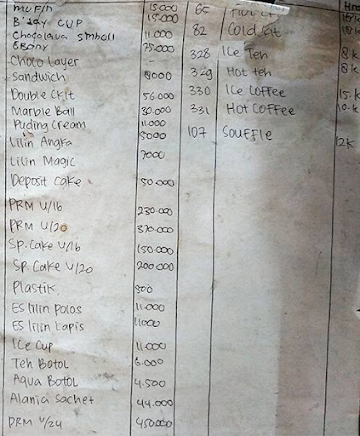 MUFFIN 15.000 65
B'day CUP 15.000 82 Cold
Chocolava small 11.000
EBONY 75.000 328 Ice Teh 8k
Choco Layer 329 Hot teh 8k
Sandwich 8000 330 Ice Coffee 15.k
Double Cklt 56.000 331 Hot Coffee 10.k
Marble Ball 30.000
Puding Cream 11.000
Lilin Angka 5000 107 Souffle 12k
Lilin Magic 7000
Deposit cake 50.000
PRM U/16 230.000
PRM U/20 370.000
Sp. Cake U/16 150.000
Sp. Cake U/20 200.000
Plastik 300
ES lilin Polos 11.000
ES lilin Lapis 11000
Ice Cup 11.000
Teh Botol 6.000
Aqua Botol 4.500
Alania Sachet 44.000
PRM U/24 450000